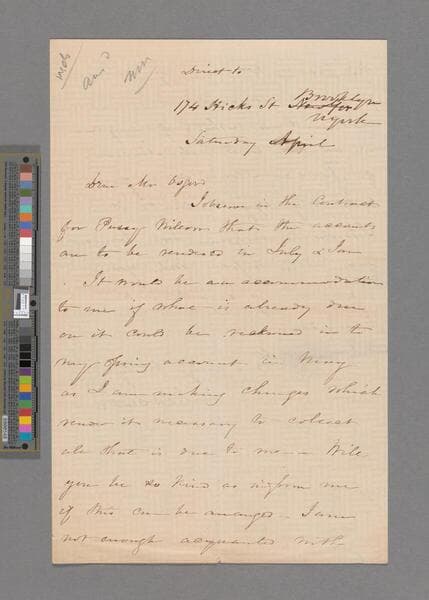 ans'd
Direct to
Brooklyn
174 Hicks St New York
N York
Saturday April
Dear Mr Osgood
I observe in the Contract
for Pussy Wilson that the accounts
are to be rendered in July & Jan
. It would be an accommodation
to me if what is already due
on it could be reckoned in to
my spring account in May
as I am making changes which
render it necessary to collect
all that is due to me – Will
you be so kind as inform me
if this can be arranged – I am
not enough acquainted with